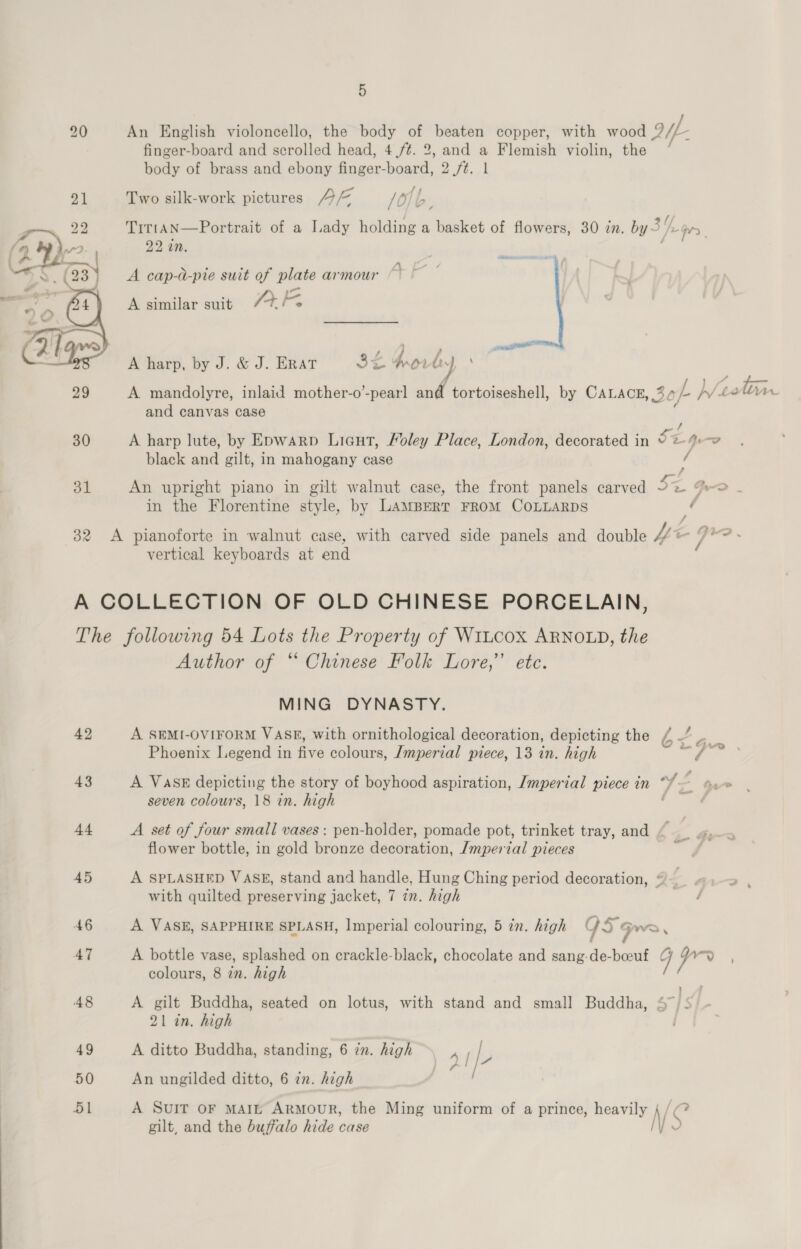 5
20 An English violoncello, the body of beaten copper, with wood
finger-board and scrolled head, 4 ft. 2, and a Flemish violin, the
body of brass and ebony finger-board, 2 ft. 1
21 Two silk-work pictures
22 TITIAN—Portrait of a Lady holding a basket of flowers, 30 in. by
22 in.
23 A cap-à-pie suit of plate armour
24 A similar suit
28 A harp, by J. & J. ERAT
29 A mandolyre, inlaid mother-o'-pearl and tortoiseshell, by CALACE,
and canvas case
30 A harp lute, by EDWARD LIGHT, Foley Place, London, decorated in
black and gilt, in mahogany case
31 An upright piano in gilt walnut case, the front panels carved
in the Florentine style, by LAMBERT FROM COLLARDS
32 A pianoforte in walnut case, with carved side panels and double
vertical keyboards at end
A COLLECTION OF OLD CHINESE PORCELAIN,
The following 54 Lots the Property of WILCOX ARNOLD, the
Author of “Chinese Folk Lore,” etc.
MING DYNASTY.
42 A SEMI-OVIFORM VASE, with ornithological decoration, depicting the
Phoenix Legend in five colours, Imperial piece, 13 in. high
43 A VASE depicting the story of boyhood aspiration, Imperial piece in
seven colours, 18 in. high
44 A set of four small vases: pen-holder, pomade pot, trinket tray, and
flower bottle, in gold bronze decoration, Imperial pieces
45 A SPLASHED VASE, stand and handle, Hung Ching period decoration,
with quilted preserving jacket, 7 in. high
46 A VASE, SAPPHIRE SPLASH, Imperial colouring, 5 in. high
47 A bottle vase, splashed on crackle-black, chocolate and sang-de-bœuf
colours, 8 in. high
48 A gilt Buddha, seated on lotus, with stand and small Buddha,
21 in. high
49 A ditto Buddha, standing, 6 in. high
50 An ungilded ditto, 6 in. high
51 A SUIT OF MAIL ARMOUR, the Ming uniform of a prince, heavily
gilt, and the buffalo hide case